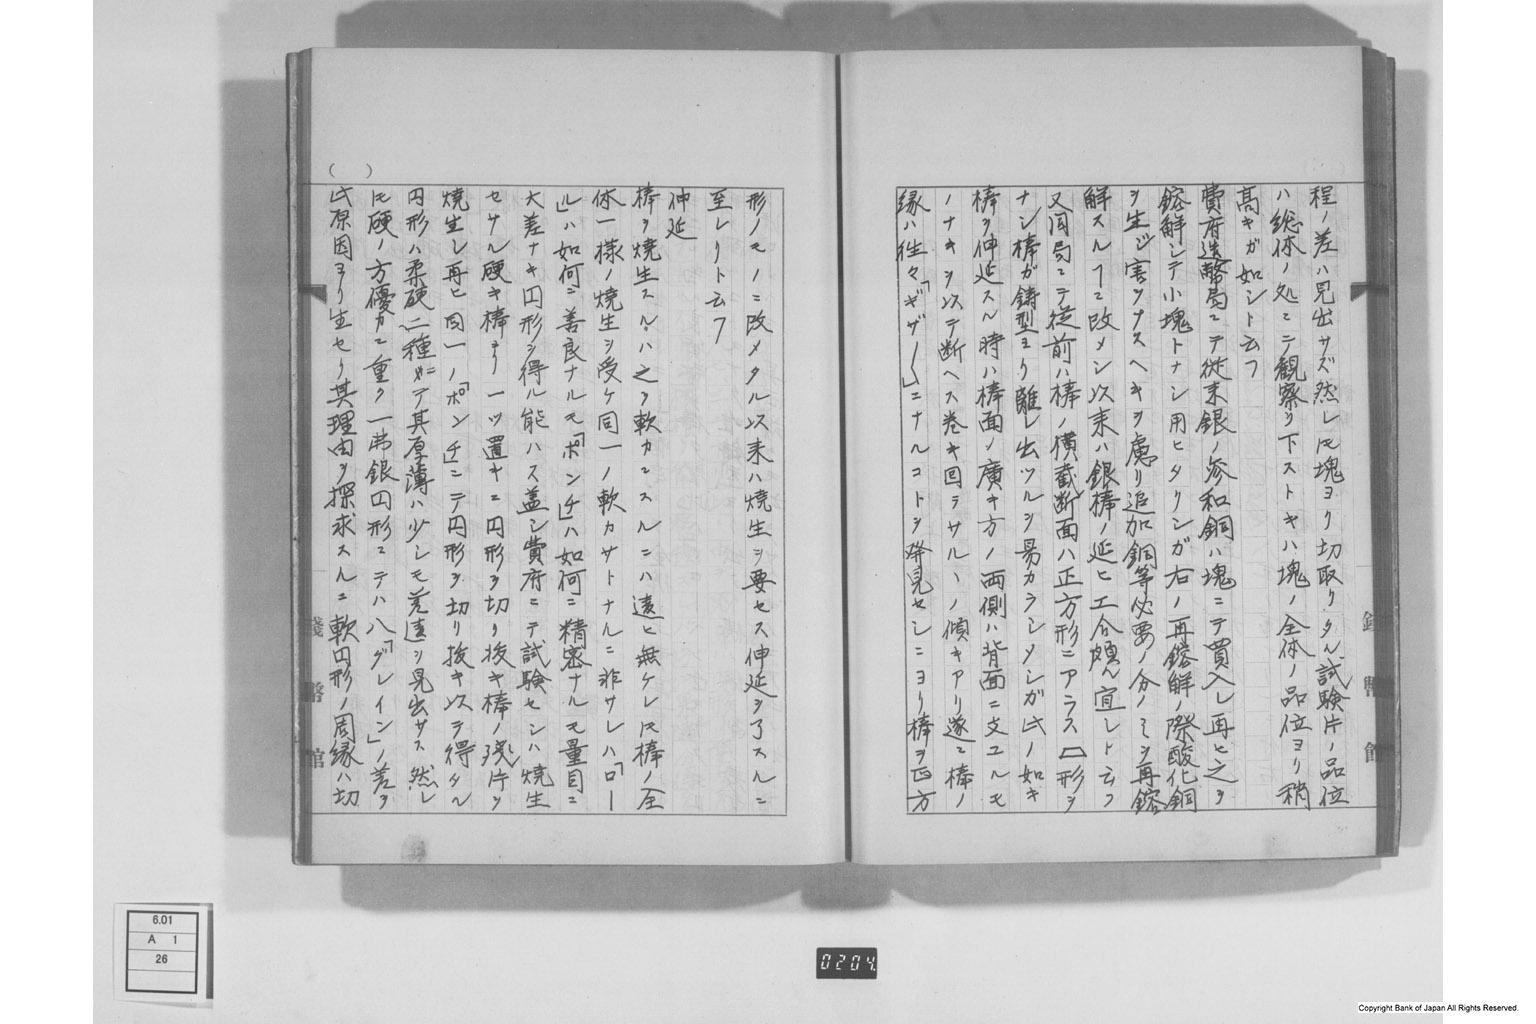 程ノ差ハ見出サズ然レ𪜈塊ヨリ切取リタル試験片ノ品位
ハ総体ノ処ニテ観察ヲ下ストキハ塊ノ全体ノ品位ヨリ稍
高キガ如シト云フ
費府造幣局ニテ従来銀ノ参和銅ハ塊ニテ買入レ再ヒ之ヲ
鎔解シテ小塊トナシ用ヒタリシガ右ノ再鎔解ノ際酸化銅
ヲ生ジ害ヲナスヘキヲ慮リ追加銅等必要ノ分ノミヲ再鎔
解スルヿニ改メシ以来ハ銀棒ノ延ヒ工合頗ル宜シト云フ
又同局ニテ従前ハ棒ノ横截断面ハ正方形ニアラス 形ヲ
ナシ棒ガ鋳型ヨリ離レ出ツルヲ易カラシメシガ此ノ如キ
棒ヲ伸延スル時ハ棒面ノ廣キ方ノ両側ハ背面ニ交ユルモ
ノナキヲ以テ断ヘス巻キ回ラサルヽノ傾キアリ遂ニ棒ノ
縁ハ往々「ギザ〱」ニナルコトヲ発見セシニヨリ棒ヲ正方
形ノモノニ改メタル以来ハ焼生ヲ要セス伸延ヲ了スルニ
至レリト云フ
伸延
棒ヲ焼生スルハ之ヲ軟カニスルニハ違ヒ無ケレ𪜈棒ノ全
体一様ノ焼生ヲ受ケ同一ノ軟カサトナルニ非サレハ「ロー
ル」ハ如何ニ善良ナルモ「ポンチ」ハ如何ニ精密ナルモ量目ニ
大差ナキ円形ヲ得ル能ハス蓋シ費府ニテ試験セシハ焼生
セサル硬キ棒ヨリ一ツ置キニ円形ヲ切リ抜キ棒ノ残片ヲ
焼生シ再ヒ同一ノ「ポンチ」ニテ円形ヲ切リ抜キ以テ得タル
円形ハ柔硬二種ニテ其厚薄ハ少シモ差違ヲ見出サス然レ
𪜈硬ノ方優カニ重ク一弗銀円形ニテハ八「グレイン」ノ差ヲ
此原因ヨリ生セリ其理由ヲ探求スルニ軟円形ノ周縁ハ切
錢幣館
錢幣館
6.01
A 1
26
0204
Copyright Bank of Japan All Rights Reserved.